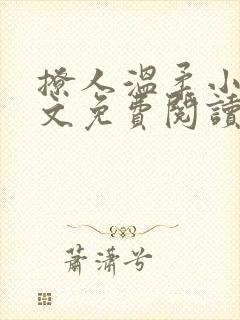 撩人溫柔小
文免費閱讀
蕭瀟兮